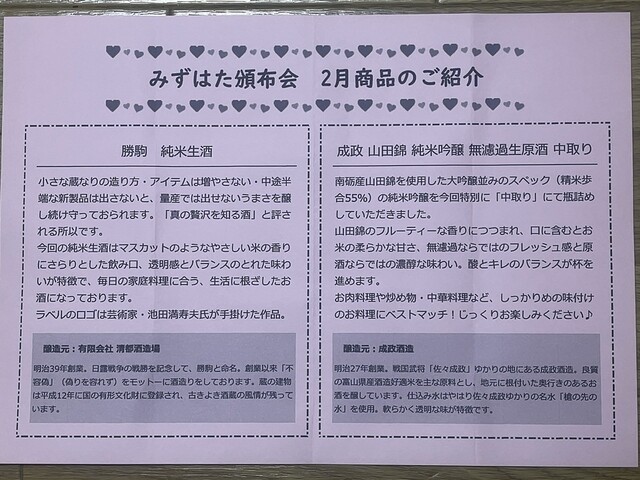 みずはた頒布会　2月商品のご紹介
勝駒　純米生酒
小さな蔵なりの造り方・アイテムは増やさない・中途半
端な新製品は出さないと、量産では出せないうまさを醸
し続け守っておられます。「真の贅沢を知る酒」と評さ
れる所以です。
今回の純米生酒はマスカットのようなやさしい米の香り
にさらりとした飲み口、透明感とバランスのとれた味わ
いが特徴で、毎日の家庭料理に合う、生活に根ざしたお
酒になっております。
ラベルのロゴは芸術家・池田満寿夫氏が手掛けた作品。
醸造元：有限会社 清都酒造場
明治39年創業。日露戦争の戦勝を記念して、勝駒と命名。創業以来「不
容偽」（偽りを容れず）をモットーに酒造りをしております。蔵の建物
は平成12年に国の有形文化財に登録され、古きよき酒蔵の風情が残って
います。
成政 山田錦 純米吟醸 無濾過生原酒 中取り
南砺産山田錦を使用した大吟醸並みのスペック（精米歩
合55%）の純米吟醸を今回特別に「中取り」にて瓶詰め
していただきました。
山田錦のフルーティーな香りにつつまれ、口に含むとお
米の柔らかな甘さ、無濾過ならではのフレッシュ感と原
酒ならではの濃醇な味わい。酸とキレのバランスが杯を
進めます。
お肉料理や炒め物・中華料理など、しっかりめの味付け
のお料理にベストマッチ！じっくりお楽しみください♪
醸造元：成政酒造
明治27年創業。戦国武将「佐々成政」ゆかりの地にある成政酒造。良質
の富山県産酒造好適米を主な原料とし、地元に根付いた奥行きのあるお
酒を醸しています。仕込み水はやはり佐々成政ゆかりの名水「槍の先の
水」を使用。軟らかく透明な味が特徴です。